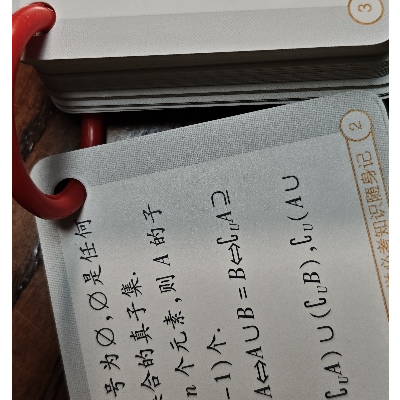 3
2
必考知识随身记
号为∅,∅是任何
合的真子集.
n个元素,则A的子
-1)个.
A⇔A∪B=B⇔∁UA⊇
∁UA)∪(∁UB),∁U(A∪